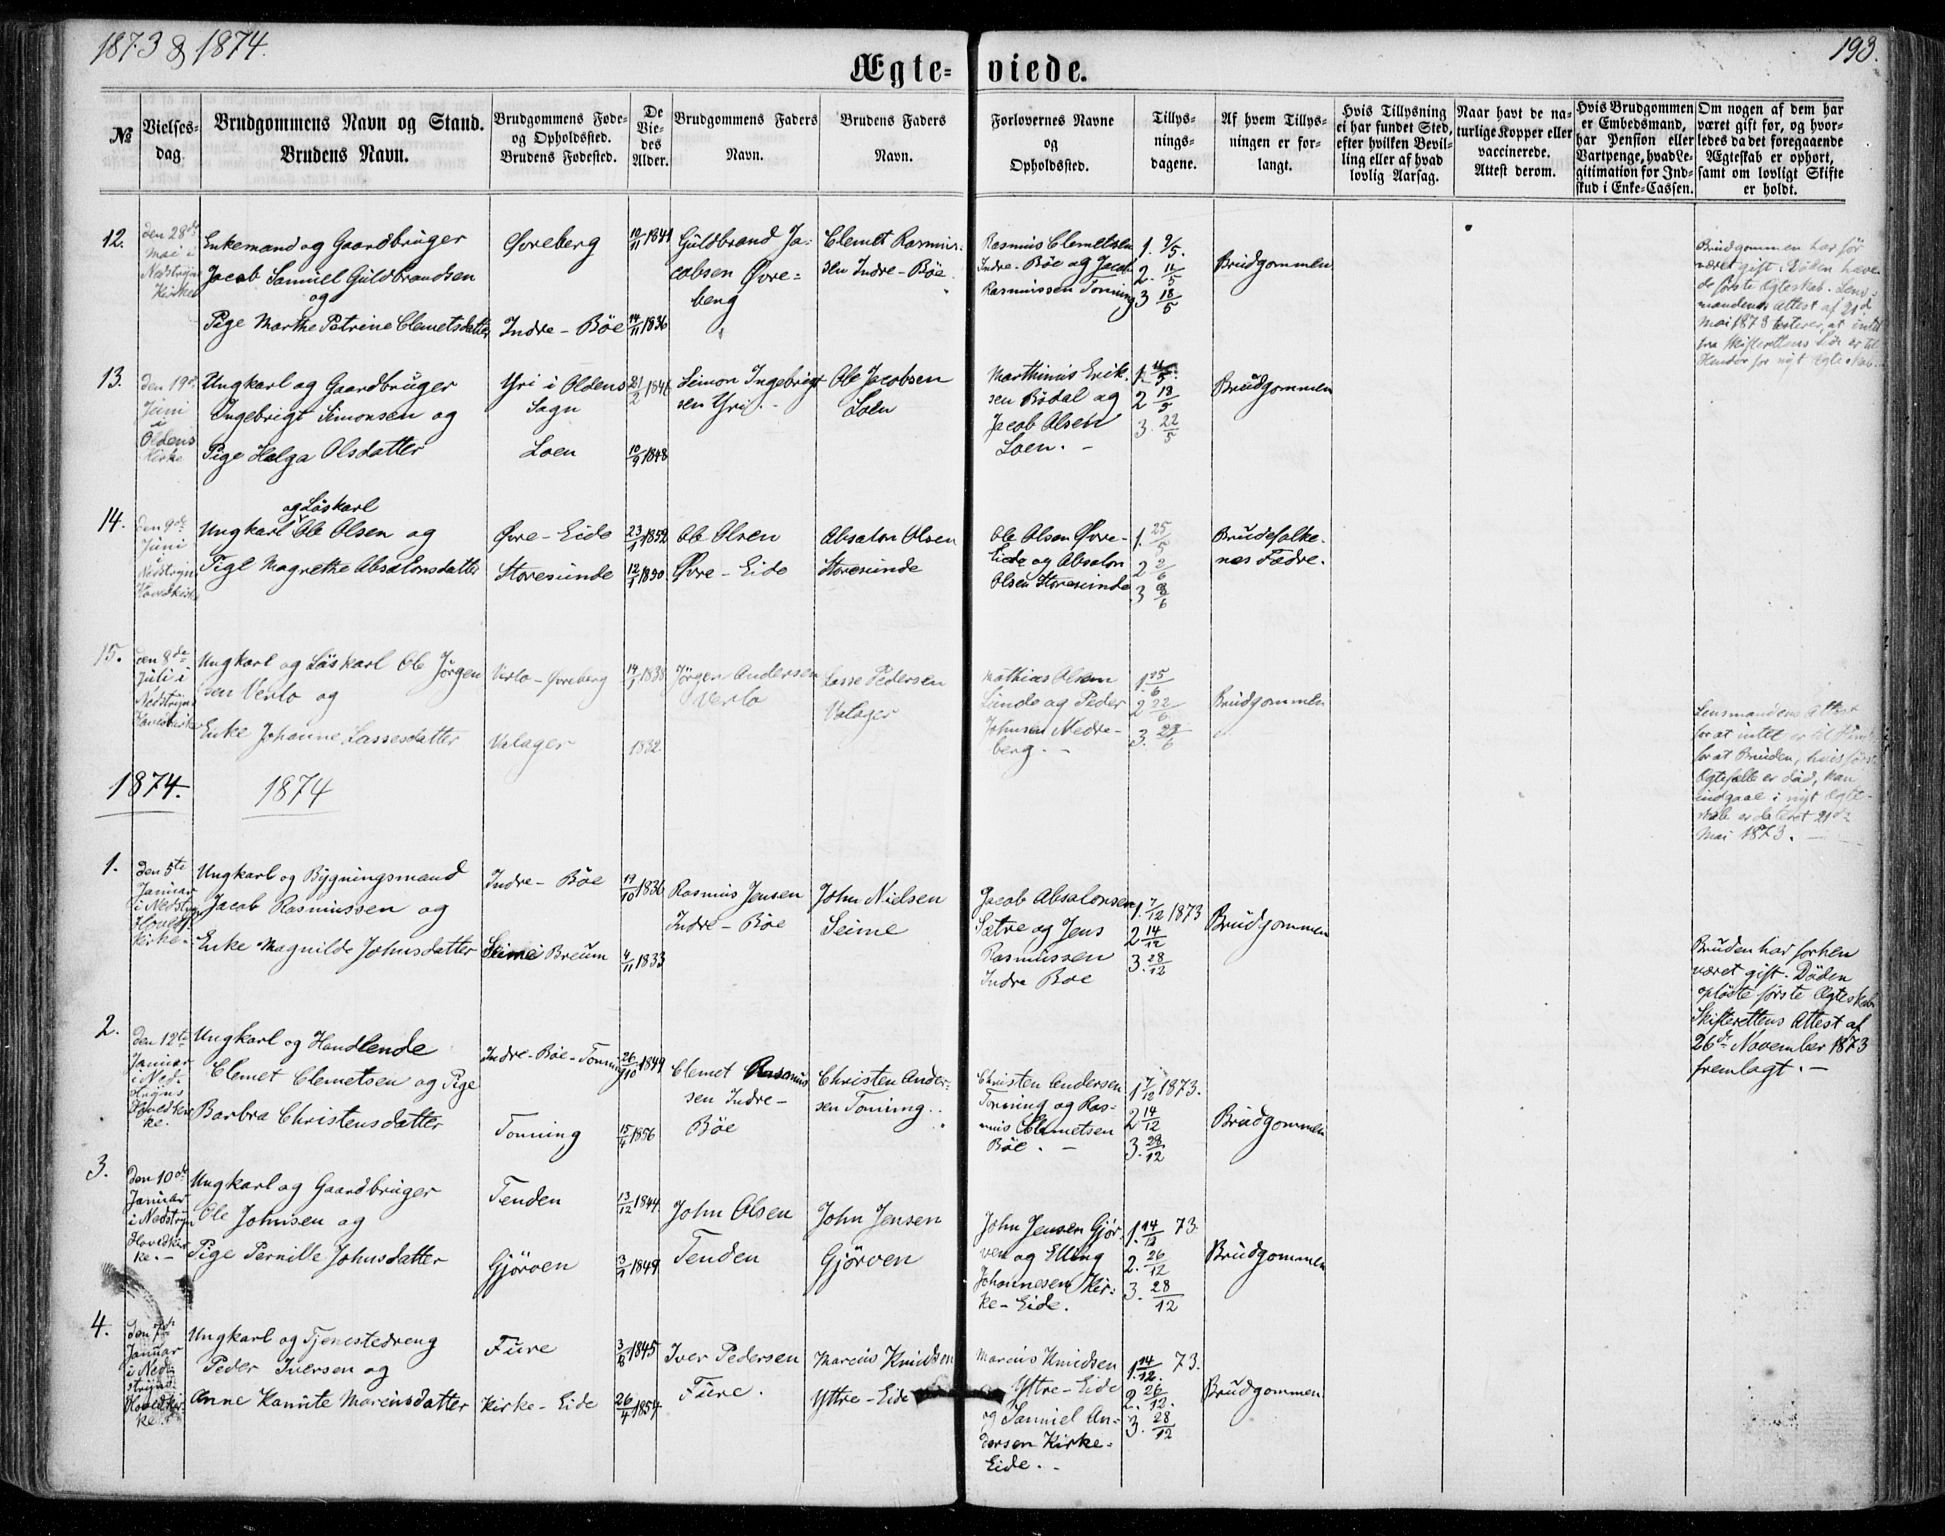 1873 & 1874.
193.
Ægte-viede.
№
Vielses-
dag.
Brudgommens Navn og Stand.
Brudens Navn.
Brudgommens Føde-
og Opholdssted.
Brudens Fødested.
De
Vie-
des
Alder.
Brudgommens Faders
Navn.
Brudens Faders
Navn.
Forlovernes Navne
og
Opholdssted.
Tillys-
nings-
dagene.
Af hvem Tillys-
ningen er for-
langt.
Hvis Tillysning
ei har fundet Sted,
efter hvilken Bevil-
ling eller af hvad
lovlig Aarsag.
Naar havt de na-
turlige Kopper eller
vaccinerede.
Attest derom.
Hvis Brudgommen
er Embedsmand,
har Pension eller
Vartpenge, hvad Le-
gitimation for Ind-
skud i Enke-Cassen.
Om nogen af dem har
været gift før, og hvor-
ledes da det foregaaende
Ægteskab er ophørt,
samt om lovligt Skifte
er holdt.
12.
den 28de
Mai i
Nedstryns
Kirke
Enkemand og Gaardbruger
Jacob Samuel Guldbrandsen
og
Pige Marthe Petrine Clemetsdatter
Øvreberg
Indre-Bøe
12/11 1841
14/11 1836
Guldbrand Ja-
cobsen Øvre-
berg
Clemet Rasmus-
sen Indre-Bøe
Rasmus Clemetsen
Indre-Bøe og Jacob
Rasmussen Tonning
1. 9/5.
2. 11/5
3 18/5
Brudgommen
Brudgommen har før
været gift. Døden hæve-
de første Ægteskab. Lens-
mandens Attest af 21de
Mai 1873 testerer, at intet
fra Skifterettens Side er til
Hinder for nyt Ægteskab.
13.
den 19de
Juni
i
Oldens
Kirke
Ungkarl og Gaardbruger
Ingebrigt Simonsen og
Pige Helga Olsdatter
Yri i Oldens
Sogn
Loen
21/2 1846
10/9 1848
Simon Ingebrigt-
sen Yri.-
Ole Jacobsen
Loen
Marthinus Erik-
sen Bødal og
Jacob Olsen
Loen.-
1. 4/5.
2 18/5
3. 22/5
Brudgommen
14.
den 9de
Juni
Nedstryns
Hovedkirke
og Løskarl
Ungkarl Ole Olsen og
Pige Magrethe Absalonsdatter
Øvre-Eide
Storesunde
23/1 1852
12/1 1850
Ole Olsen
Øvre-Eide
Absalon Olsen
Storesunde
Ole Olsen Øvre-
Eide og Absalon
Olsen Storesunde
1. 25/5
2 2/6
3 8/6
Brudefolke-
nes Fædre.
15.
den 8de
Juli i
Nedstryns
Hovedkirke
Ungkarl og Løskarl Ole Jörgen
sen Verlo og
Enke Johanne Lassesdatter
Verlo-Øvreberg
Valager
14/1 1838
1832
Jörgen Andersen
Verlo
Lasse Pedersen
Valager
Mathias Olsen
Lunde og Peder
Johnsen Nedre-
berg.-
1. 15/6
2 22/6
3. 29/6
Brudgommen
Lensmandens Attest
for at intet er til Hinder
for at Bruden, hvis første
Ægtefælle er død, kan
indgaae i nyt Ægte-
skab er dateret 21de
Mai 1873.-
1874.
1874
1.
den 5te
Januar
i Nedstryns
Hoved-
kirke.
Ungkarl og Bygningsmand
Jacob Rasmussen og
Enke Magnilde Johnsdatter
Indre-Bøe
Seime i Breum
19/10 1836
4/11 1833
Rasmus Jensen
Indre-Bøe
John Nielsen
Seime
Jacob Absalonsen
Sætre og Jens
Rasmussen
Indre Boe
1. 7/12 1873
2 14/12
3. 28/12
Brudgommen
Bruden har forhen
været gift. Döden
oplöste første Ægteskab
Skifterettens Attest af
26de November 1873
fremlagt.-
2.
den 12te
Januar
i Ned-
stryns
Hovedkir
ke.
Ungkarl og Handlende
Clemet Clemetsen og Pige
Barbra Christensdatter
Indre-Bøe-Tonning
Tonning
26/10 1849
15/4 1856
Clemet Rasmus-
sen Indre-
Bøe
Christen Ander-
sen Tonning.
Christen Andersen
Tonning og Ras-
mus Clemetsen
Bøe.-
1 7/12 1873.
2 14/12
3. 28/12
Brudgommen
3.
den 10de
Januar
i Nedstryn
Hovedkir
ke.-
Ungkarl og Gaardbruger
Ole Johnsen og
Pige Pernille Johnsdatter
Tenden
Gjörven
13/12 1844.
3/1 1849
John Olsen
Tenden
John Jensen
Gjörven
John Jensen Gjør-
ven og Elling
Johannesen Kir-
ke-Eide.
1. 14/12 73.
2. 26/12
3. 28/12
Brudgommen
4.
den 7de
Januar
i Ned-
stryns
Hovedkir
ke.
Ungkarl og Tjenestedreng
Peder Iversen og
Anne Kamite Marcusdatter
Fure
Kirke-Eide
3/8 1845
26/4 1854
Iver Pedersen
Fure.
Marcus Knudsen
Yttre-Eide
Marcus Knudsen
Yttre-Eide
og Samuel An-
dersen Kirke-
Eide.-
1. 14/12. 73.
2. 26/12.
3. 28/12
Brudgommen